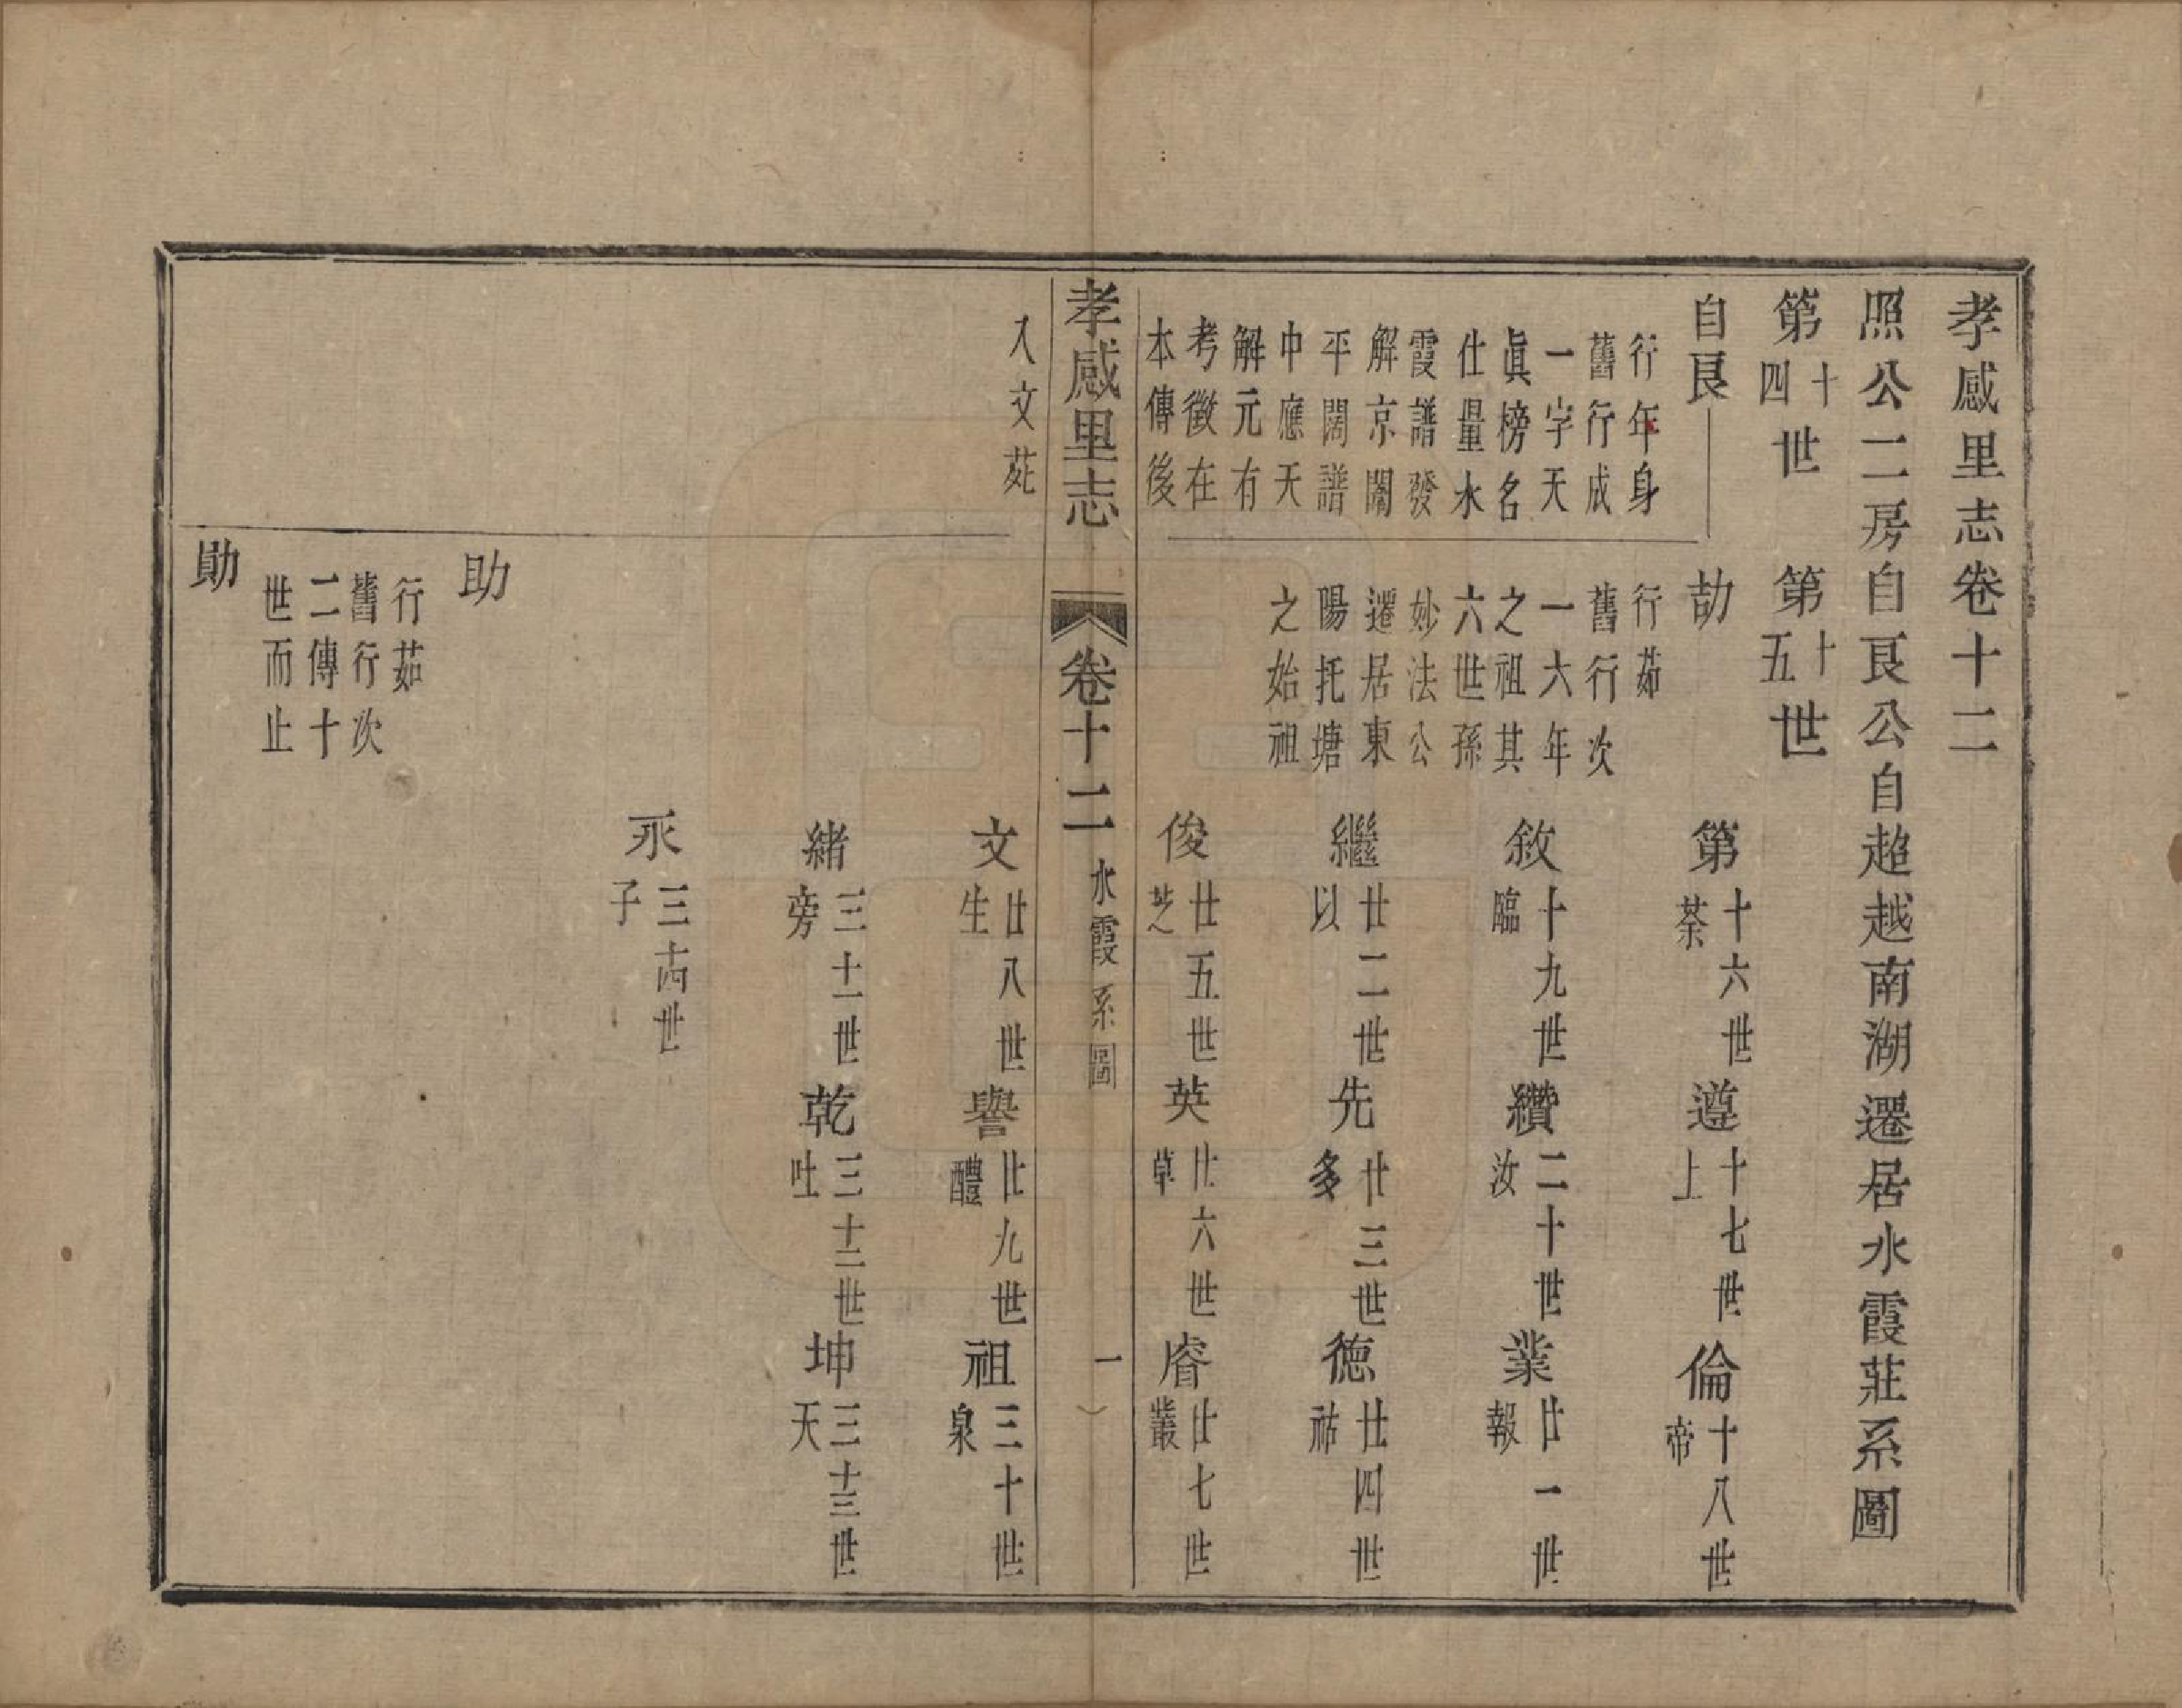 孝感里志卷十二
照公二房自艮公自趙越南湖遷居水霞莊系圖
第十四世
第十五世
自艮
行年身
舊行成
一字天
眞榜名
仕量水
霞譜發
解京闈
平闊譜
中應天
解元有
考徵在
本傳後
入文苑
劼
行茹
舊行次
一六年
之祖其
六世孫
妙法公
遷居東
陽托塘
之始祖
第十六世荼
遵十七世上
倫十八世帝
敘十九世臨
纘二十世汝
業廿一世報
繼廿二世以
先廿三世多
德廿四世祜
俊廿五世芝
英廿六世草
睿廿七世叢
孝感里志 卷十二 水霞系圖 一
文廿八世生
譽廿九世醴
祖三十世泉
緒三十一世旁
乾三十二世吐
坤三十三世天
永三十四世子
助
行茹
舊行次
二傳十
世而止
勛